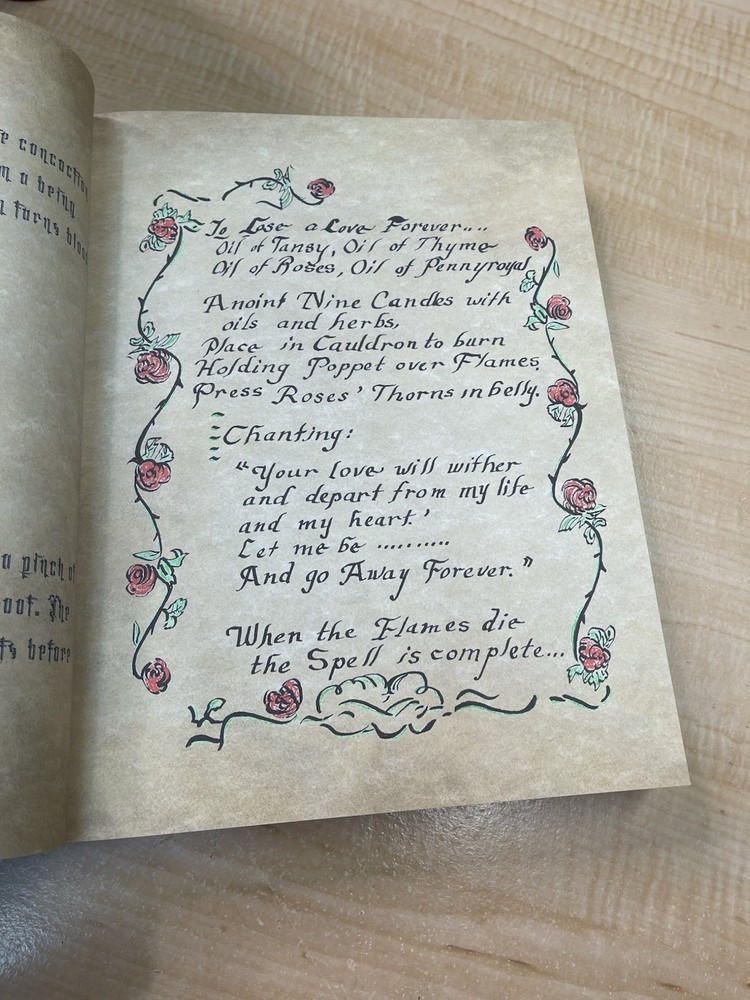 e concoction
m a being
n turns blood
a pinch of
oot. The
ts before
To Lose a Love Forever....
Oil of Tansy, Oil of Thyme
Oil of Roses, Oil of Pennyroyal
Anoint Nine Candles with
oils and herbs,
Place in Cauldron to burn
Holding Poppet over Flames,
Press Roses' Thorns in belly.
Chanting:
"Your love will wither
and depart from my life
and my heart.'
Let me be ..........
And go Away Forever."
When the Flames die
the Spell is complete...